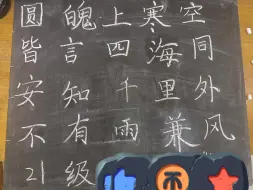 圆魄上寒空
皆言四海同
安知千里外
不有雨兼风
21级